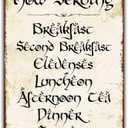 Now Serving
Breakfast
Second Breakfast
Elevenses
Luncheon
Afternoon Tea
Dinner